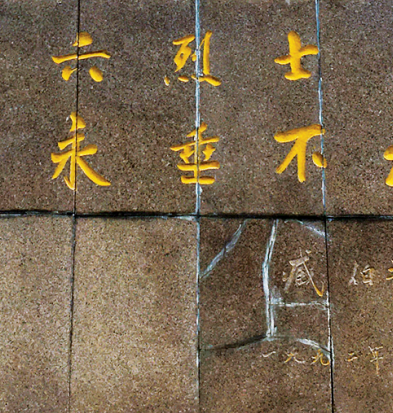 六烈士
永垂不
臧伯
一九九二年